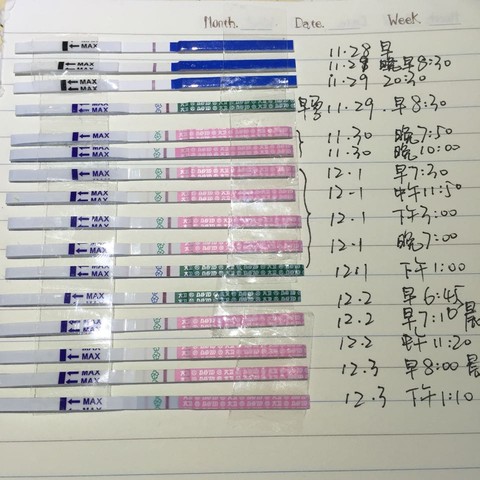 Month. Date. Week.
MAX 11.28 早
MAX 11.28 晚早8:30
MAX 11.29 20:30
MAX 早 11.29. 早8:30
MAX 11.30 晚7:50
MAX 11.30 晚10:00
MAX 12.1 早7:30
MAX 12.1 中午11:50
MAX 12.1 下午3:00
MAX 12.1 晚7:00
MAX 12.1 下午1:00
MAX 12.2 早6:45
MAX 12.2 早7:10 晨
MAX 12.2 午11:20
MAX 12.3 早8:00 晨
MAX 12.3 下午1:10